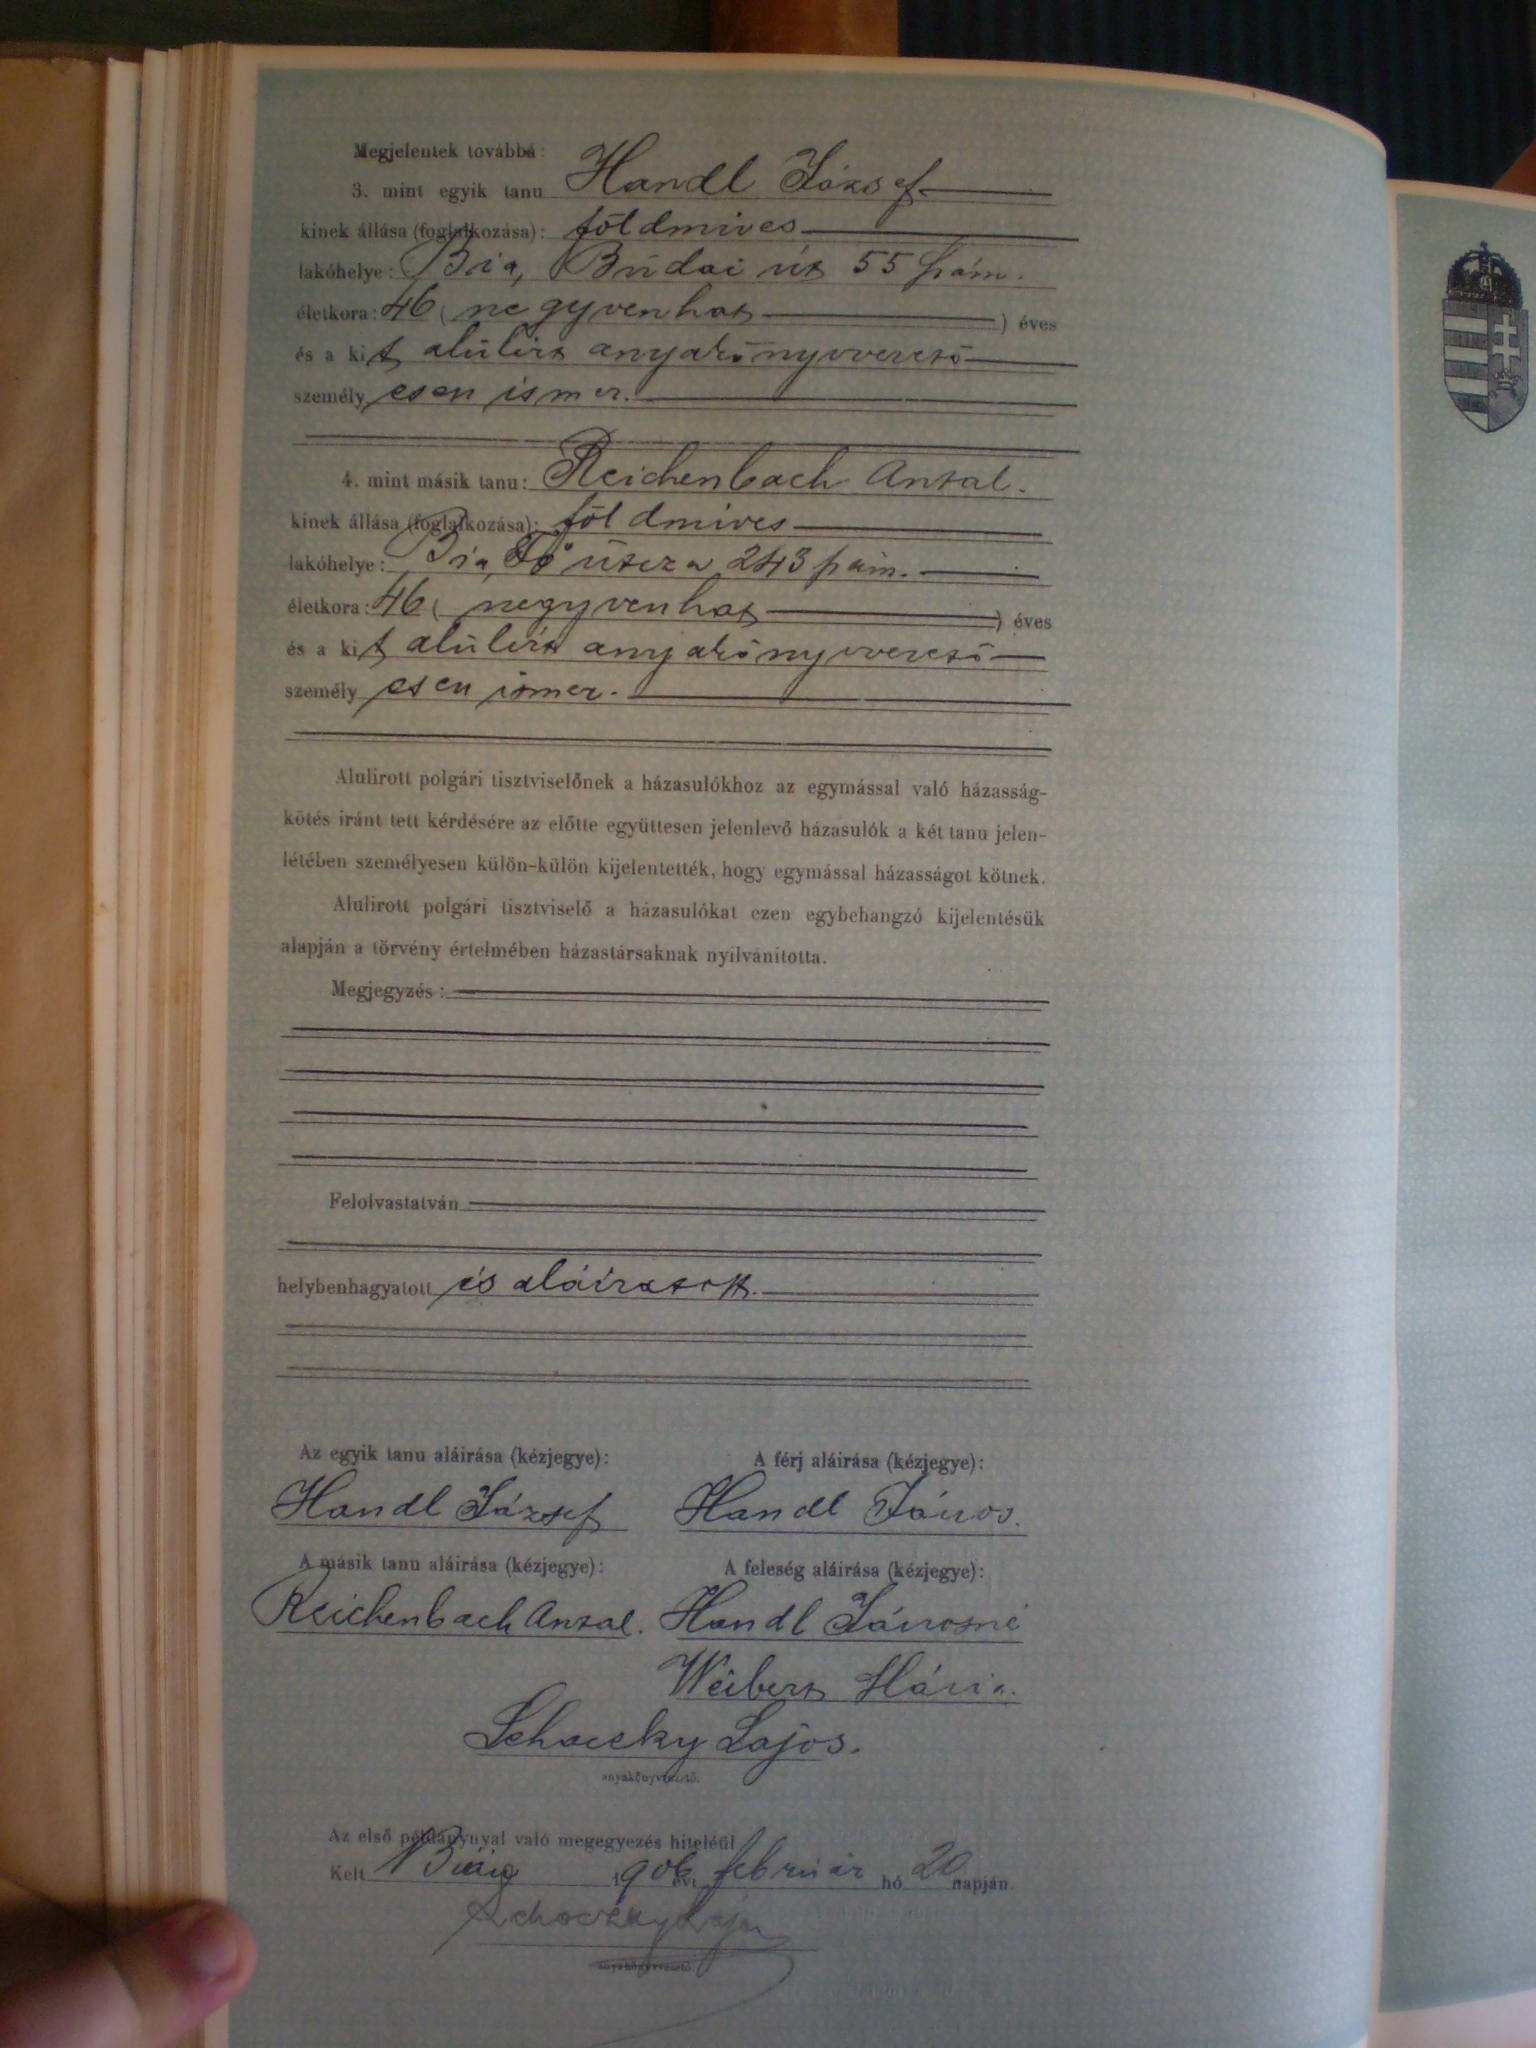 Megjelentek továbbá:
3. mint egyik tanu Handl József
kinek állása (foglalkozása): földmives
lakóhelye: Bia, Budai út 55 szám.
életkora: 46 (negyvenhat) éves
és a kit alulirt anyakönyvvezető
személyesen ismer.
4. mint másik tanu: Reichenbach Antal.
kinek állása (foglalkozása): földmives
lakóhelye: Bia, Fő utcza 243 szám.
életkora: 46 (negyvenhat) éves
és a kit alulirt anyakönyvvezető
személyesen ismer.
Alulirott polgári tisztviselőnek a házasulókhoz az egymással való házasság-
kötés iránt tett kérdésére az előtte együttesen jelenlevő házasulók a két tanu jelen-
létében személyesen külön-külön kijelentették, hogy egymással házasságot kötnek.
Alulirott polgári tisztviselő a házasulókat ezen egybehangzó kijelentésük
alapján a törvény értelmében házastársaknak nyilvánította.
Megjegyzés:
Felolvastatván
helybenhagyatott és aláiratott.
Az egyik tanu aláirása (kézjegye): A férj aláirása (kézjegye):
Handl József Handl János.
A másik tanu aláirása (kézjegye): A feleség aláirása (kézjegye):
Reichenbach Antal. Handl Jánosné
Weibert Mária.
Schoczky Lajos.
anyakönyvvezető.
Az első példánynyal való megegyezés hiteléül
Kelt Bián 1906 évi február hó 20 napján.
Schoczky Lajos
anyakönyvvezető.